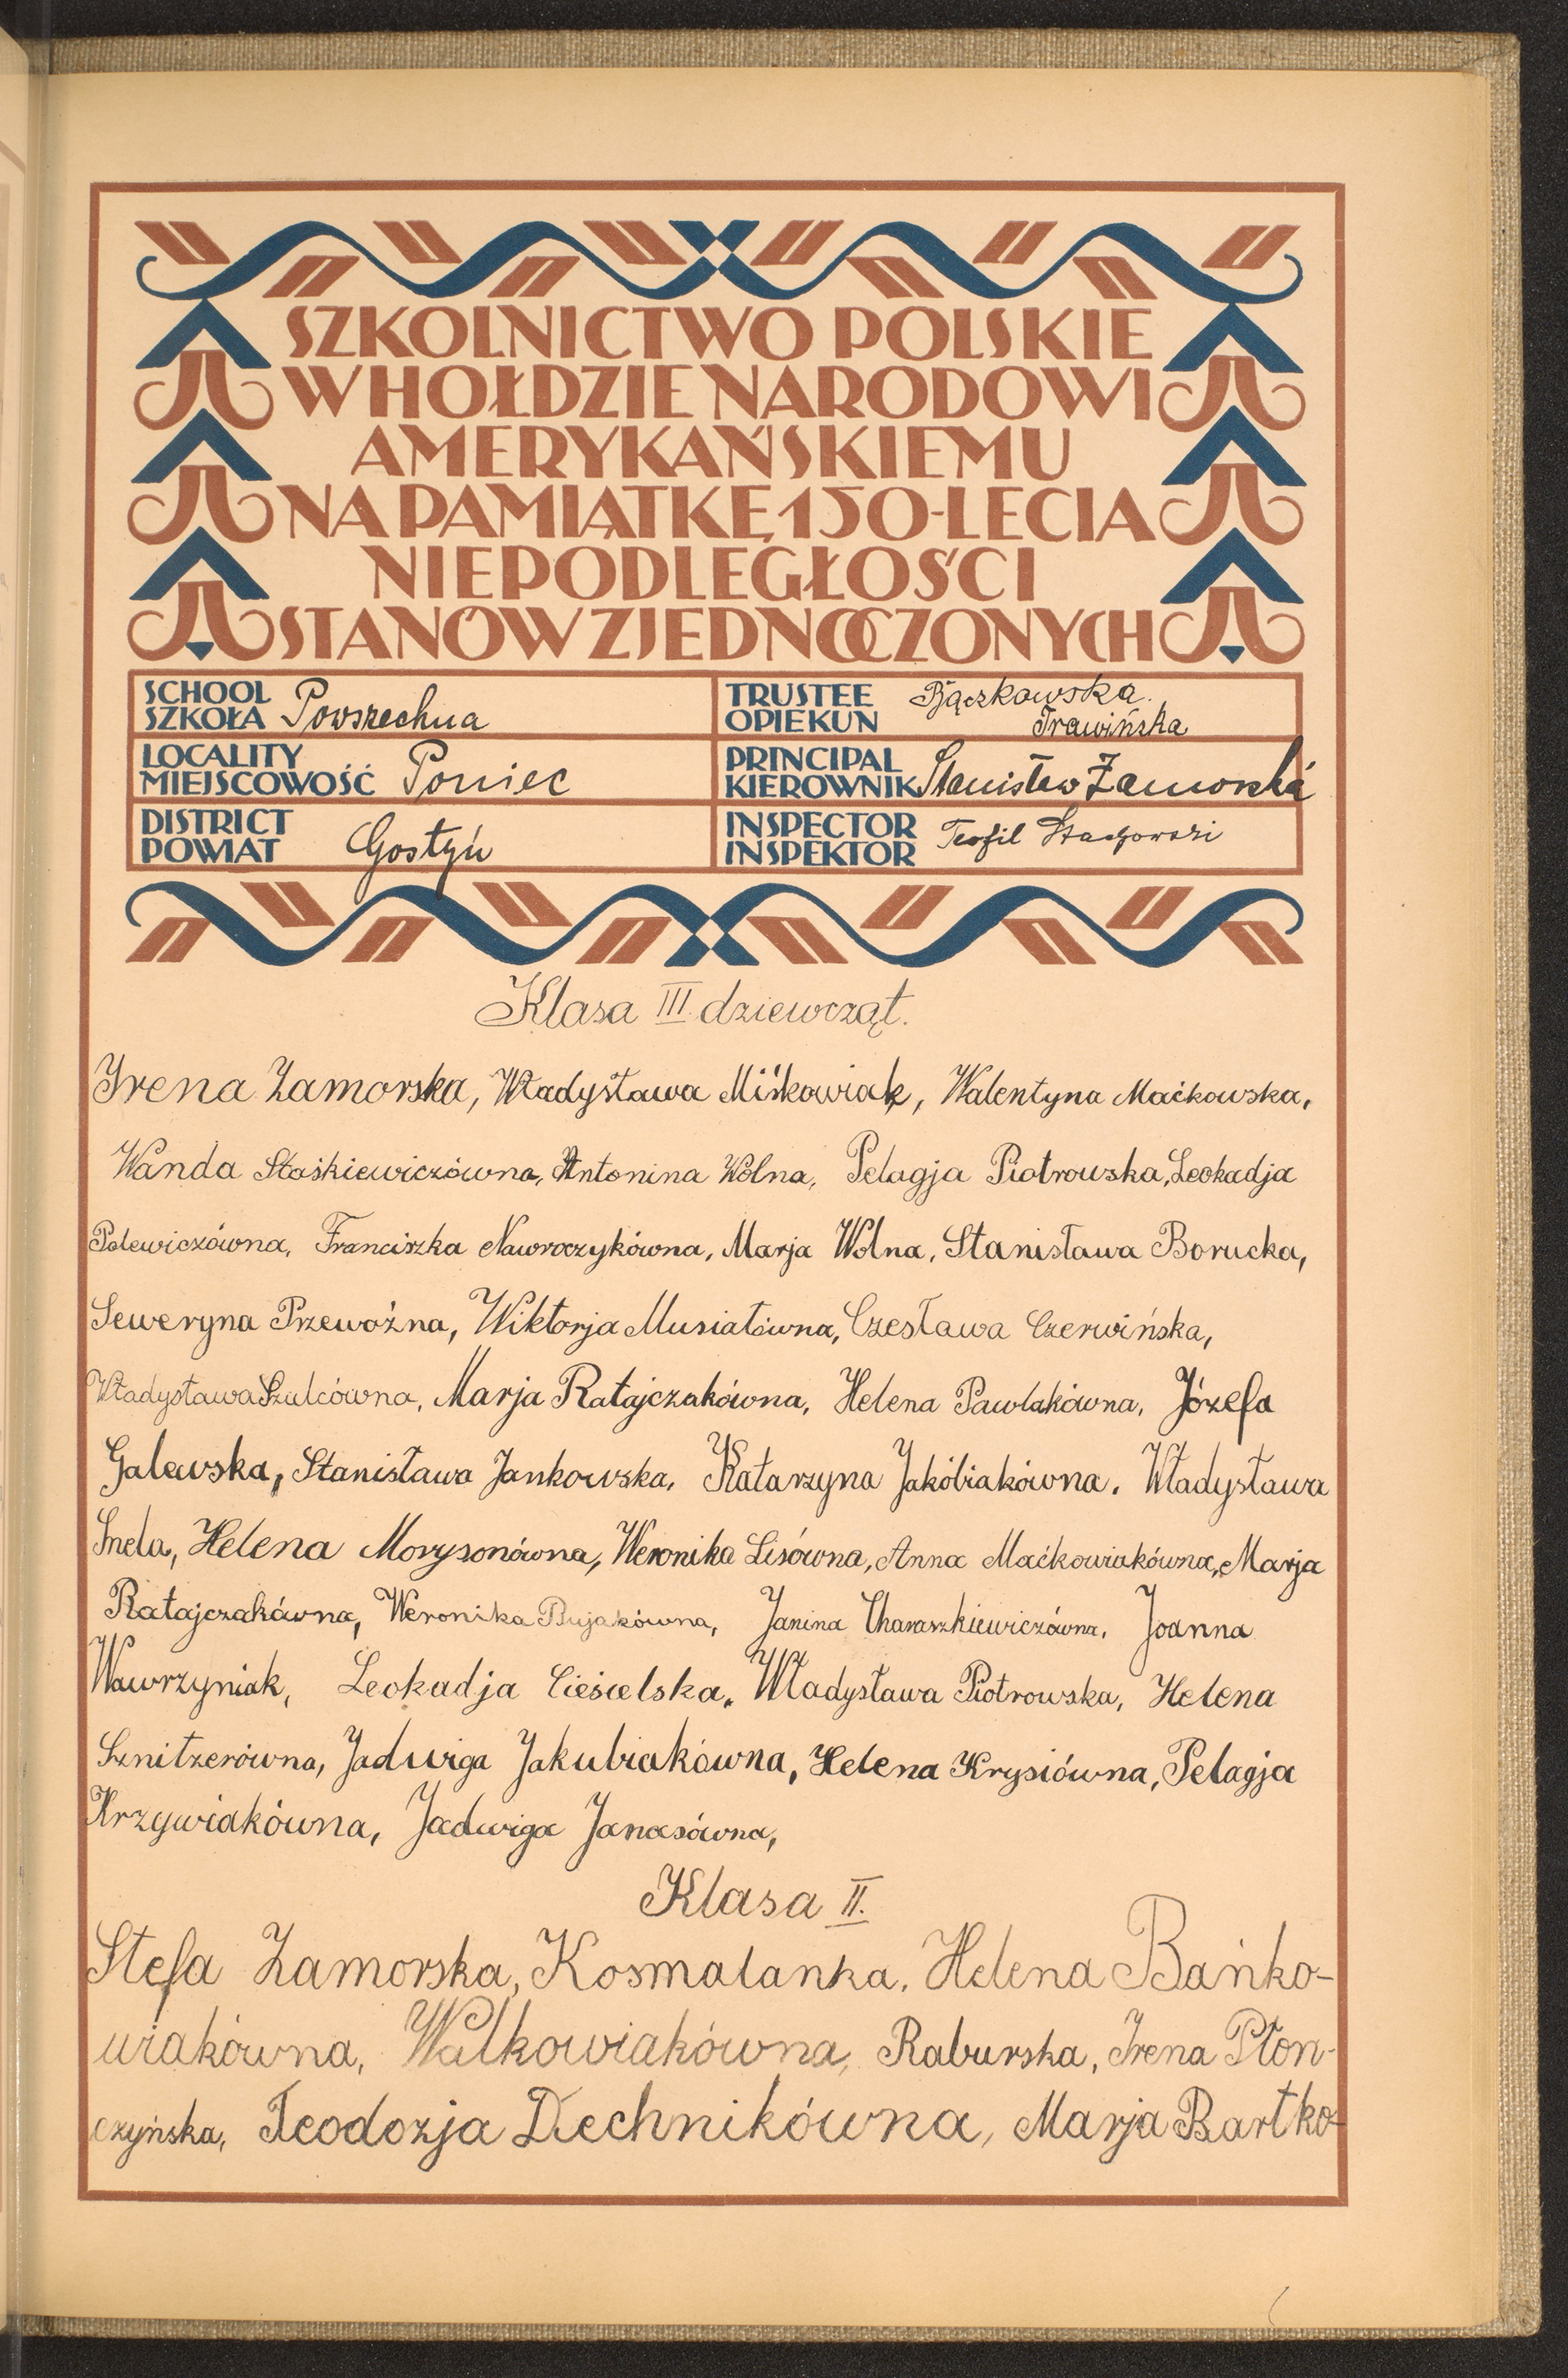 SZKOLNICTWO POLSKIE
W HOŁDZIE NARODOWI
AMERYKAŃSKIEMU
NA PAMIĄTKĘ 150-LECIA
NIEPODLEGŁOŚCI
STANÓW ZJEDNOCZONYCH
SCHOOL
SZKOŁA Powszechna
TRUSTEE Bączkowska.
OPIEKUN Trawińska
LOCALITY
MIEJSCOWOŚĆ Poniec
PRINCIPAL
KIEROWNIK Stanisław Zamorski
DISTRICT
POWIAT Gostyń
INSPECTOR
INSPEKTOR Teofil Stachowski
Klasa III dziewcząt.
Irena Zamorska, Władysława Miśkowiak, Walentyna Maćkowska,
Wanda Staśkiewiczówna, Antonina Wolna, Pelagja Piotrowska, Leokadja
Polewiczówna, Franciszka Nawroczykówna, Marja Wolna, Stanisława Borucka,
Seweryna Przewoźna, Wiktorja Musiałówna, Czesława Czerwińska,
Władysława Szulcówna, Marja Ratajczakówna, Helena Pawlakówna, Józefa
Galewska, Stanisława Jankowska, Katarzyna Jakóbiakówna, Władysława
Snela, Helena Morysonówna, Weronika Lisówna, Anna Maćkowiakówna, Marja
Ratajczakówna, Weronika Bujakówna, Janina Charaszkiewiczówna, Joanna
Wawrzyniak, Leokadja Cieślelska, Władysława Piotrowska, Helena
Sznitzerówna, Jadwiga Jakubiakówna, Helena Krysiówna, Pelagja
Krzywiakówna, Jadwiga Janasówna,
Klasa II.
Stefa Zamorska, Kosmalanka, Helena Bańko-
wiakówna, Walkowiakówna, Raburska, Irena Płon-
czyńska, Teodozja Dechnikówna, Marja Bartko-